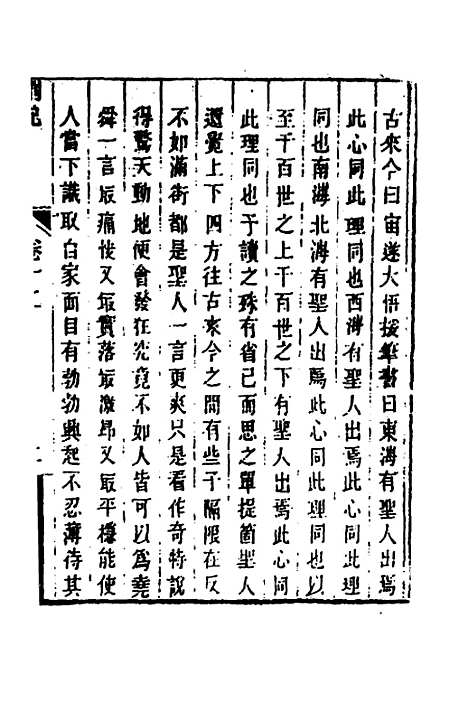 古來今曰宙遂大悟援筆書曰東海有聖人出焉
此心同此理同也西海有聖人出焉此心同此理
同也南海北海有聖人出焉此心同此理同也以
至千百世之上千百世之下有聖人出焉此心同
此理同也予讀之殊有省已而思之單提箇聖人
還覺上下四方往古來今之間有些子隔限在反
不如滿街都是聖人一言更爽只是看作奇特說
得驚天動地便會發狂究竟不如人皆可以為堯
舜一言最痛快又最實落最激昂又最平穩能使
人當下識取自家面目有勃勃興起不忍薄待其
劄記
卷十一